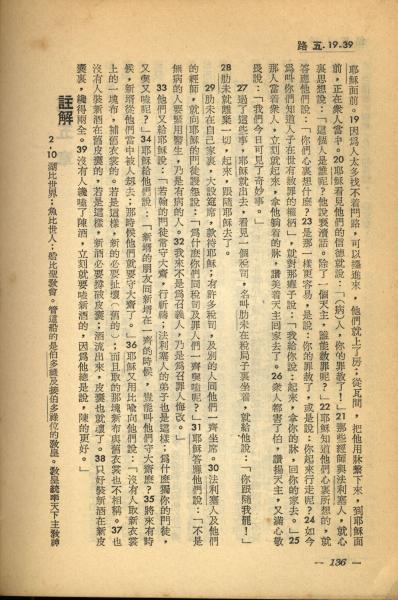 路 五．19-39
耶穌面前。19因爲人太多找不着門路，可以擡進來，他們就上了房；從瓦間，把他用牀繫下來，到耶穌面
前，正在衆人當中。20耶穌看見他們的信德就說：「（病）人，你的罪赦了！」21那些經師與法利塞人，就心
裏思想說：「這個人是誰呢？他說褻瀆話。除了一個天主，誰能赦罪呢？」22耶穌知道他們心裏所想的，就
答應他們說：「你們心裏想什麽？23是那一樣更容易，是說：你的罪赦了，或是說：你起來行走呢？24如今
爲叫你們知道人子在世有赦罪的權柄」，就對那癱子說：「我給你說：起來，拿你的牀，回你的家去。」25
那人當着衆人，立刻就起來，拿他躺着的牀，讚美着天主回家去了。26衆人都害了怕，讚揚天主，又滿心敬
畏說：「我們今日可見了奇妙事。」
27過了這些事，耶穌就出去，看見一個稅司，名叫肋未在稅局子裏坐着，就給他說：「你跟隨我罷！」
28肋未就離棄一切，起來，跟隨耶穌去了。
29肋未在自己家裏，大設筵席，款待耶穌；有許多稅司，及別的人同他們一齊坐席。30法利塞人及他們
的經師，就向耶穌的門徒譭怨說：「爲什麽你們同稅司及罪人們一齊喫喝呢？」31耶穌答應他們說：「不是
無病的人要緊用醫生，乃是有病的人。32我來不是爲召義人，乃是爲召罪人悔改。」
33他們又給耶穌說：「若翰的門徒常守大齋，行祈禱；法利塞人的弟子也是這樣；爲什麽獨你的門徒，
又喫又喝呢？」34耶穌給他們說：「新壻的朋友同新壻在一齊的時候，豈能叫他們守大齋麽？35將來有時
候，新壻從他們當中被人刼去；那時候他們就要守大齋了。」36耶穌又用比喻向他們說：「沒有人取新衣裳
上的一塊布，補舊衣裳的。若是這樣，新的必要扯壞（舊的），而且取的那塊新布與舊衣裳也不相稱。37也
沒有人裝新酒在舊皮囊的，若是這樣，新酒必要撐破皮囊；酒流出來，皮囊也就壞了。38只好裝新酒在新皮
囊裏，纔得兩全。39沒有人纔喝了陳酒，立刻就要喝新酒的，因爲他總是說，陳的更好。」
註解
2．10 湖比世界；魚比世人；船比聖教會。管這船的是伯多祿及接伯多祿位的教皇。教皇統率天下主教神
— 136 —